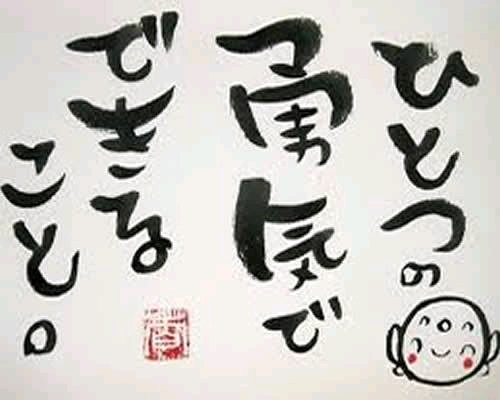 ひとつの
勇気で
できる
こと。